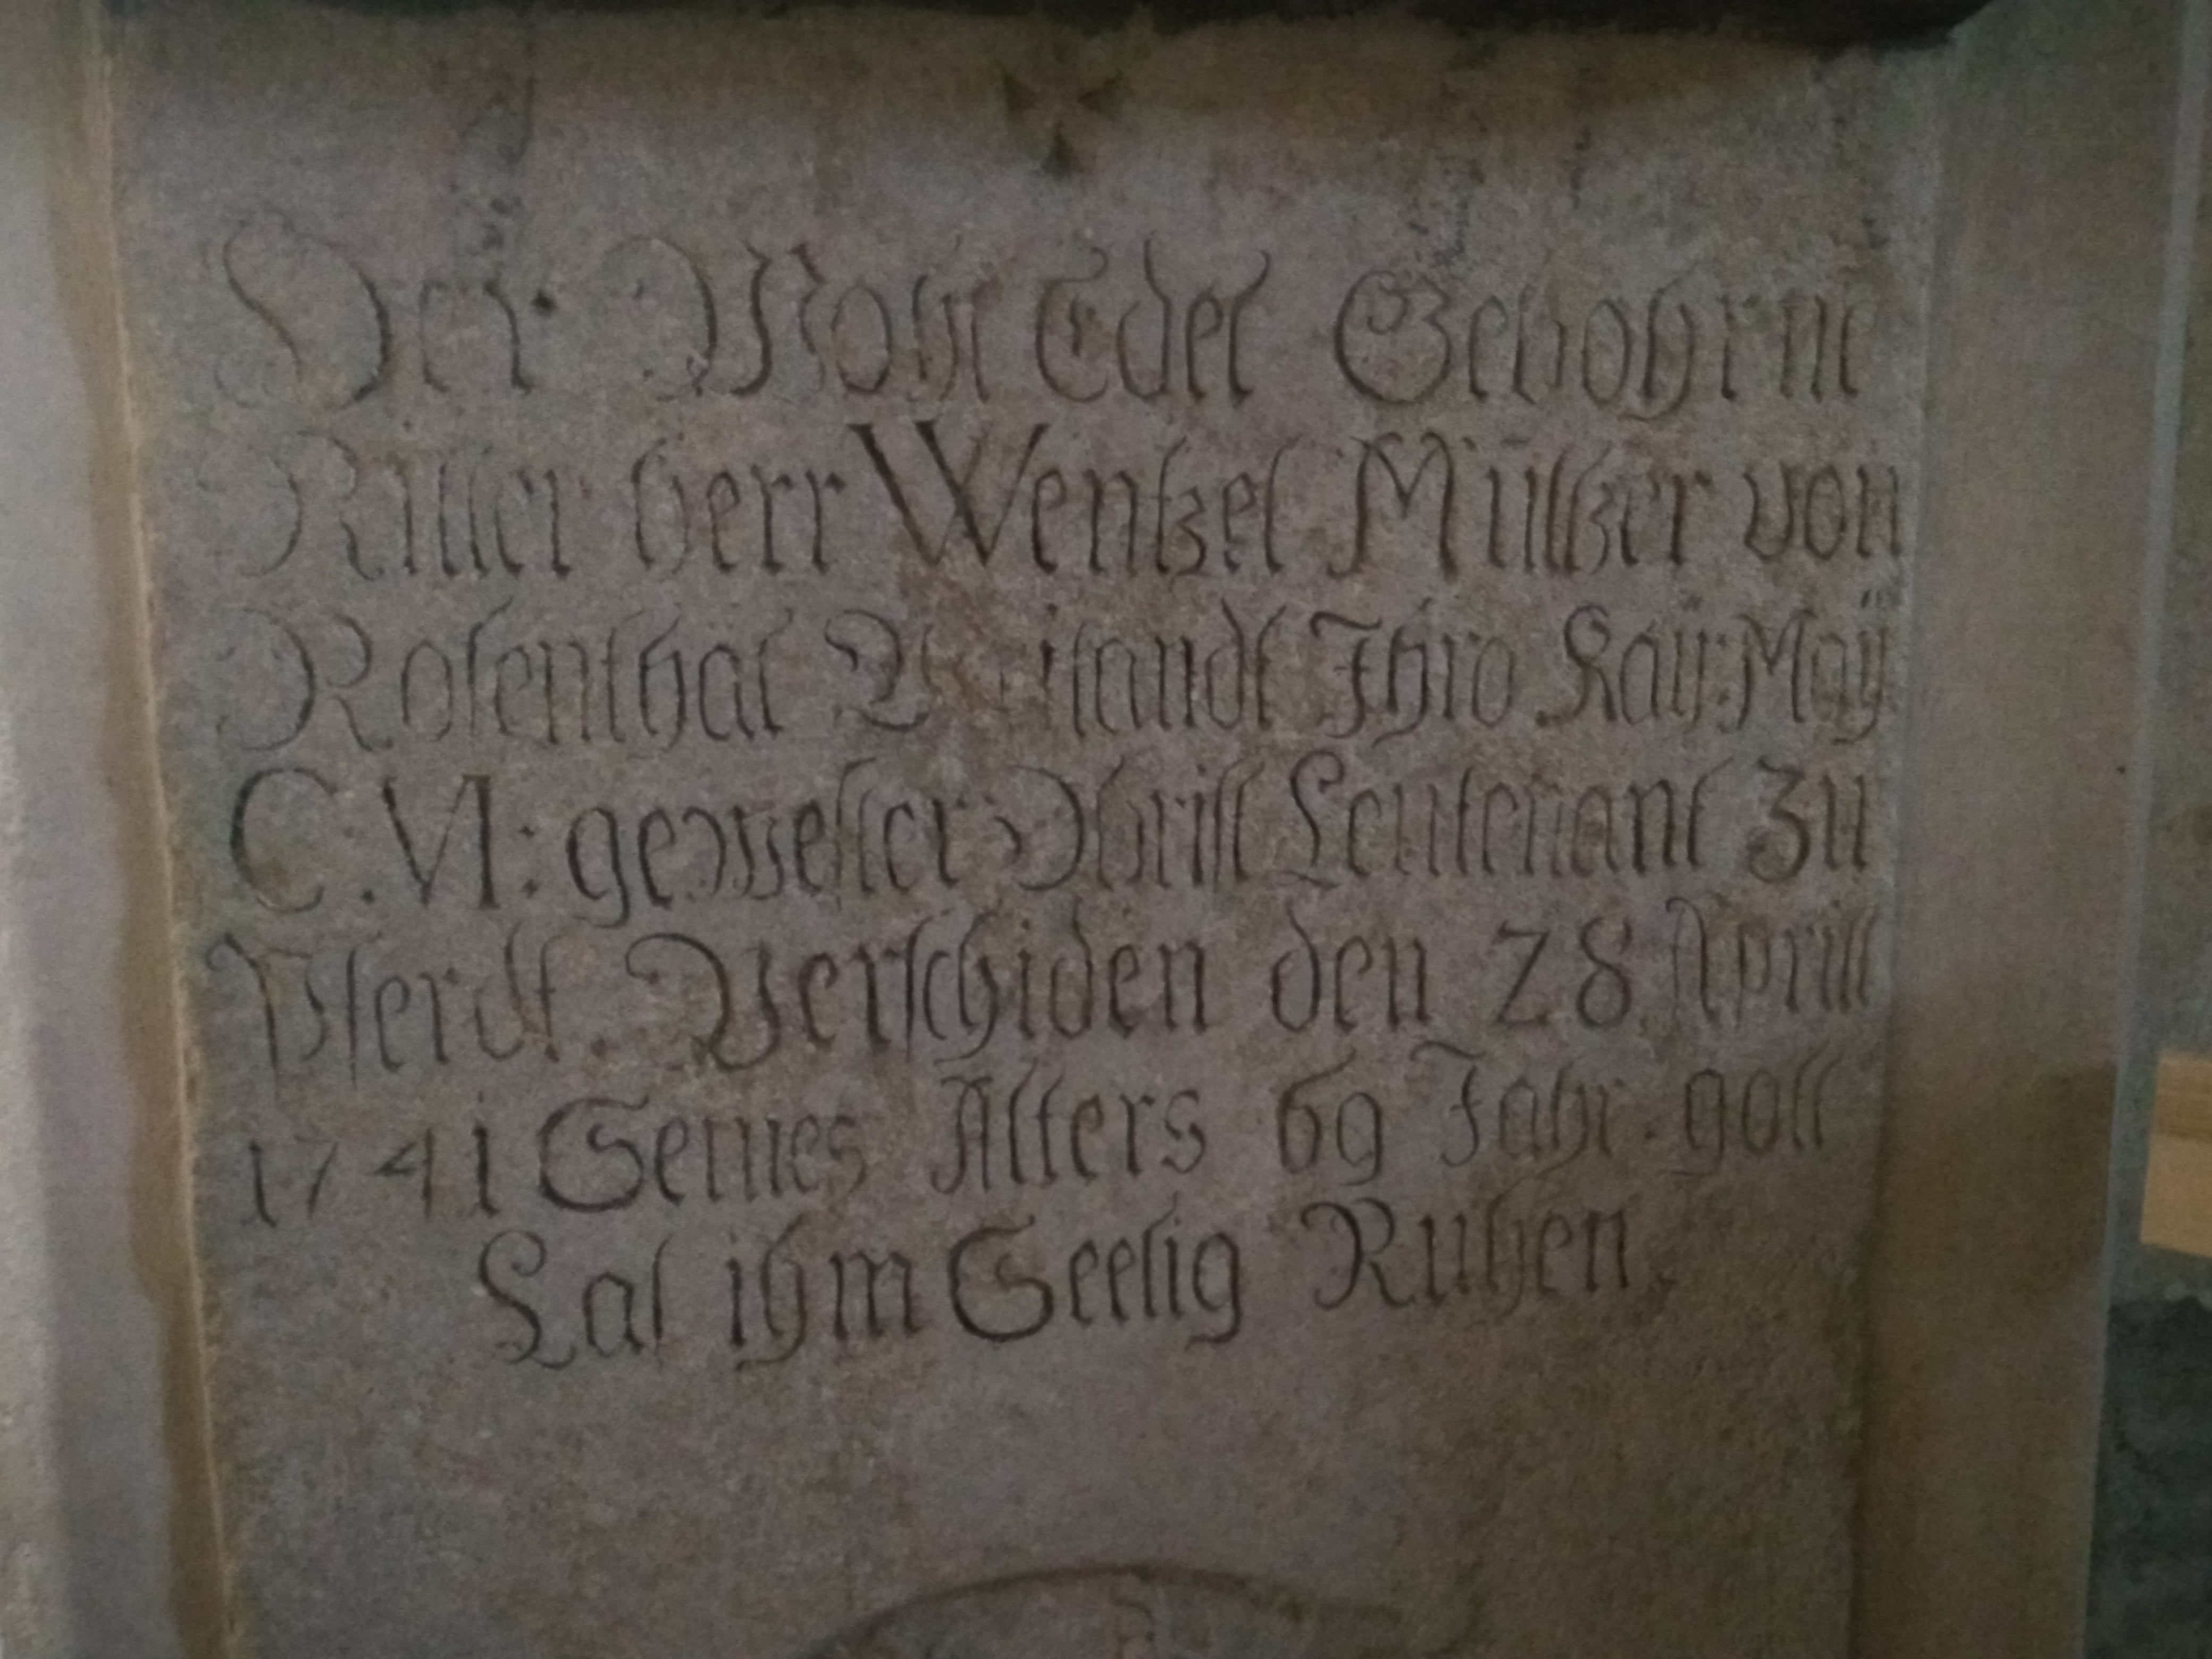 Der Wohl Edel Gebohrne
Ritter herr Wentzel Mültzer von
Rosenthal Weilandt Ihro Kaÿ: Maÿ
C. VI: gewester Obrist Leutenant Zu
Pferdt. Verschiden den 28 Aprill
1741 Seines Alters 69 Jahr. gott
Las ihm Seelig Ruhen.